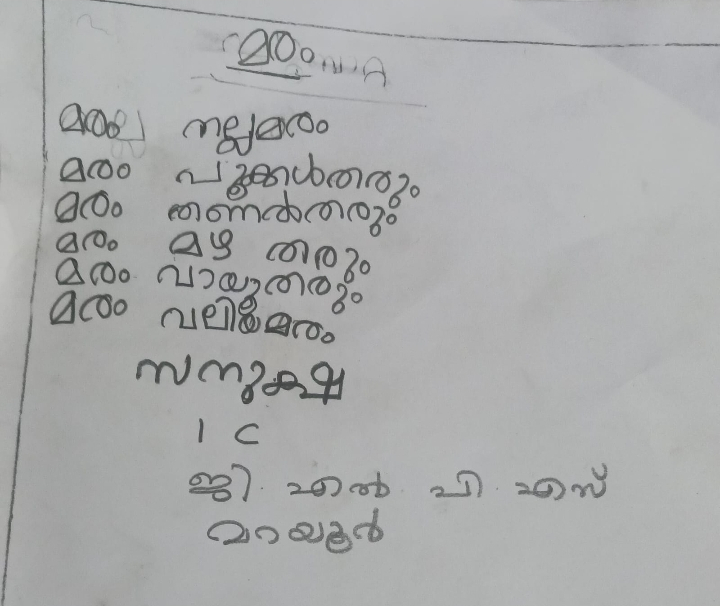 മരം
മരം നല്ലമരം
മരം പൂക്കൾതരും
മരം തണൽതരും
മരം മഴ തരും
മരം വായുതരും
മരം വലിയമരം
1 C
ജി. എൽ. പി. എസ്
വറയൂർ